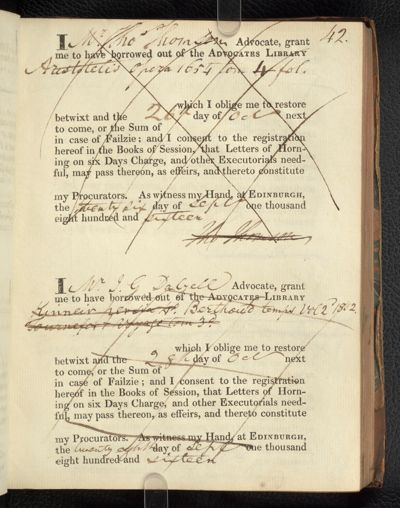 42.
I Mr Thos Thomson Advocate, grant
me to have borrowed out of the ADVOCATES LIBRARY
Aristotelis Opera 1654 tom 4 fol.
which I oblige me to restore
betwixt and the 26 day of Oct next
to come, or the Sum of
in case of Failzie; and I consent to the registration
hereof in the Books of Session, that Letters of Horn-
ing on six Days Charge, and other Executorials need-
ful, may pass thereon, as effeirs, and thereto constitute
my Procurators. As witness my Hand, at EDINBURGH,
the twenty six day of Sept one thousand
eight hundred and sixteen
Tho Thomson
I Mr J. G. Dalyell Advocate, grant
me to have borrowed out of the ADVOCATES LIBRARY
Berthould temps Vol 2d 1802.
voyage tom 3d
which I oblige me to restore
betwixt and the 28 day of Oct next
to come, or the Sum of
in case of Failzie; and I consent to the registration
hereof in the Books of Session, that Letters of Horn-
ing on six Days Charge, and other Executorials need-
ful, may pass thereon, as effeirs, and thereto constitute
my Procurators. As witness my Hand, at EDINBURGH,
the twenty eighth day of Sept one thousand
eight hundred and sixteen